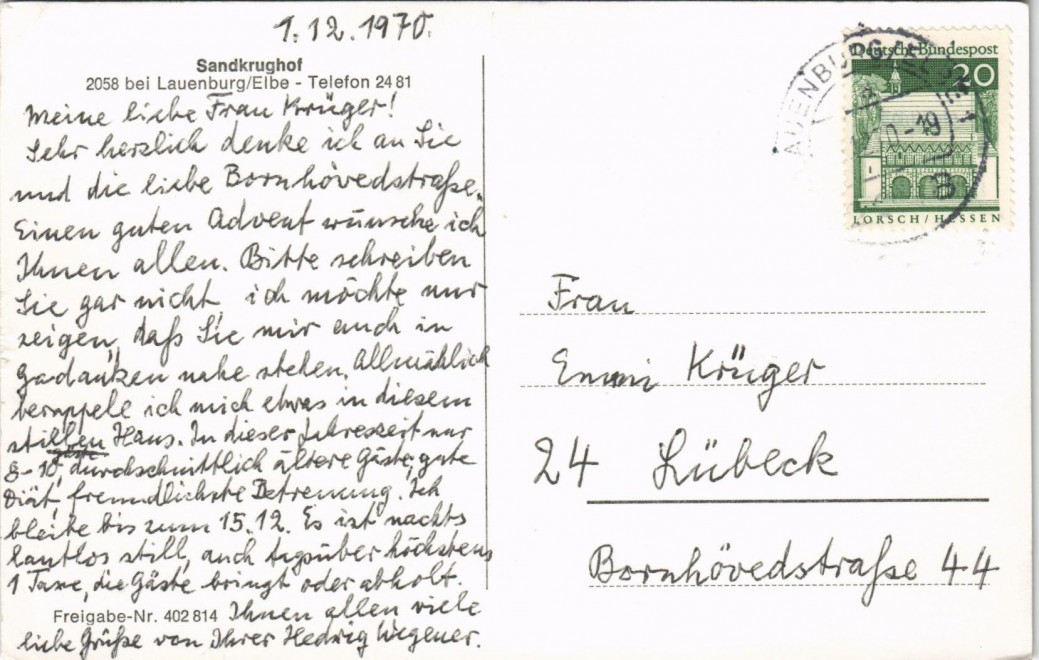 1.12.1970.
Sandkrughof
2058 bei Lauenburg/Elbe - Telefon 24 81
Meine liebe Frau Krüger!
Sehr herzlich denke ich an Sie
und die liebe Bornhövedstraße.
Einen guten Advent wünsche ich
Ihnen allen. Bitte schreiben
Sie gar nicht, ich möchte nur
zeigen, daß Sie mir auch in
Gedanken nahe stehen. Allmählich
berappele ich mich etwas in diesem
stillen Haus. In dieser Jahreszeit nur
8-10, durchschnittlich ältere Gäste, gute
Diät, freundlichste Betreuung. Ich
bleibe bis zum 15.12. Es ist nachts
lautlos still, auch tagsüber höchstens
1 Taxe, die Gäste bringt oder abholt.
Freigabe-Nr. 402 814 Ihnen allen viele
liebe Grüße von Ihrer Hedwig Wegener.
Deutsche Bundespost
20
LORSCH/HESSEN
LAUENBURG/
-19
Frau
Emmi Krüger
24 Lübeck
Bornhövedstraße 44